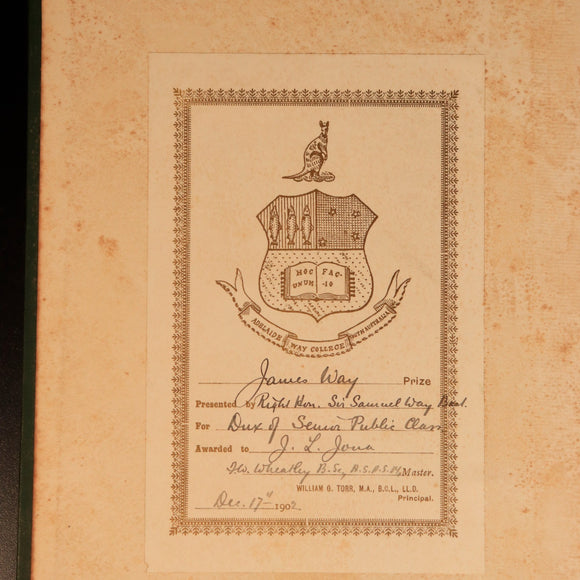 HOC FAC-
UNUM -IO
ADELAIDE WAY COLLEGE SOUTH AUSTRALIA
James Way Prize
Presented by Right Hon. Sir Samuel Way Bart.
For Dux of Senior Public Class
Awarded to J. L. Jona
Wheatley B.Sc, Master.
WILLIAM G. TORR, M.A., B.C.L., LL.D.
Principal.
Dec. 17th 1902